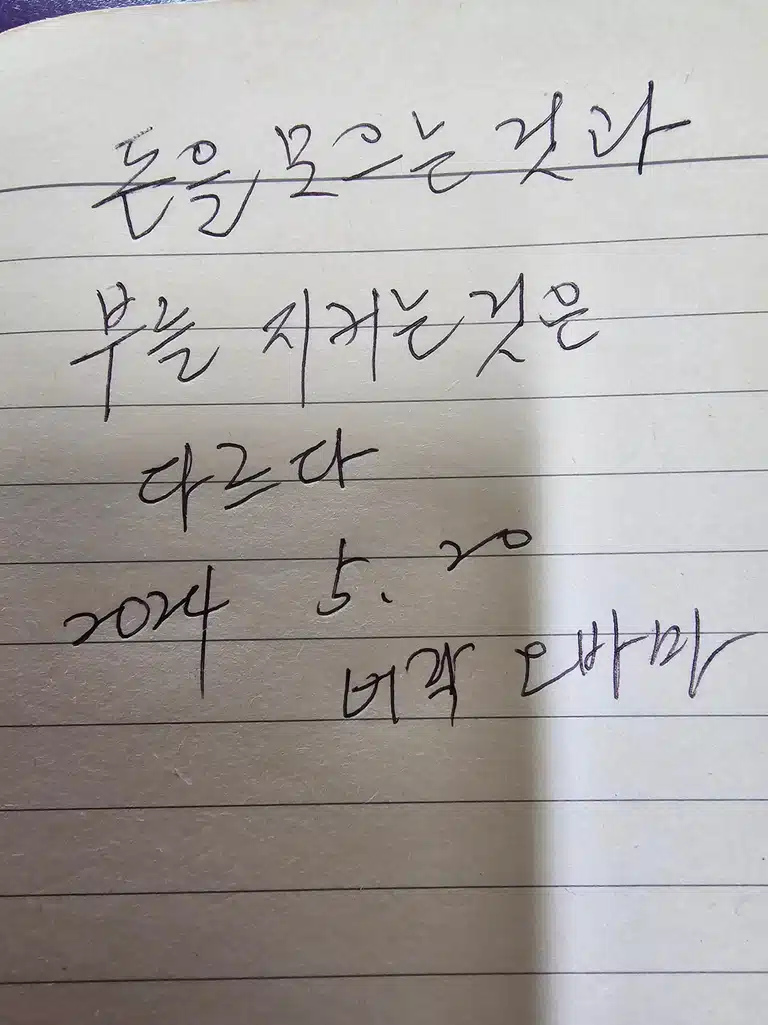 돈을 모으는 것과
부를 지키는 것은
다르다
2024 5. 20
버락 오바마